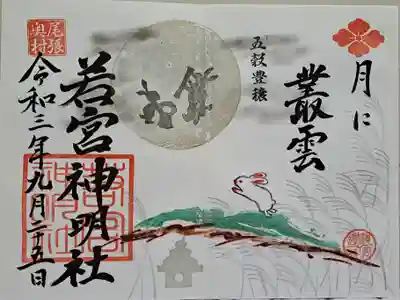 月に
叢雲
五穀豊穣
若宮神明社
尾張
奥村
令和三年九月二十五日